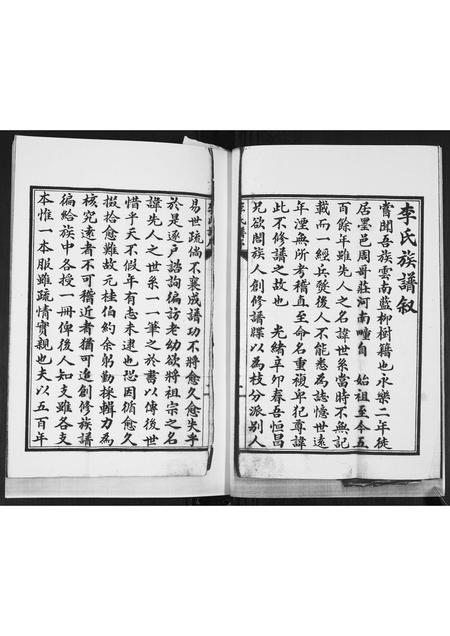 李氏族譜叙
嘗聞吾族雲南藍柳樹籍也永樂二年徙
居墨邑周哥莊河南疃自 始祖至今五
百餘年雖先人之名諱世系當時不無記
載而一經兵燹後人不能悉為誌憶世遠
年湮無所考稽直至命名重複卑犯尊諱
此不修譜之故也 光緒辛卯春吾恒昌
兄欲問族人創修譜牒以為枝分派別人
易世疏倘不襄成譜功不將愈久愈失乎
於是逐戶諮詢徧訪老幼欲將祖宗之名
諱先人之世系一一筆之於書以傳後世
惜乎天不假年有志未逮也恐因循愈久
掇拾愈難故元桂伯約余躬勤採輯力為
核究遠者不可稽近者猶可追創修族譜
徧給族中各授一冊俾後人知支雖各支
本惟一本服雖疏情實親也夫以五百年